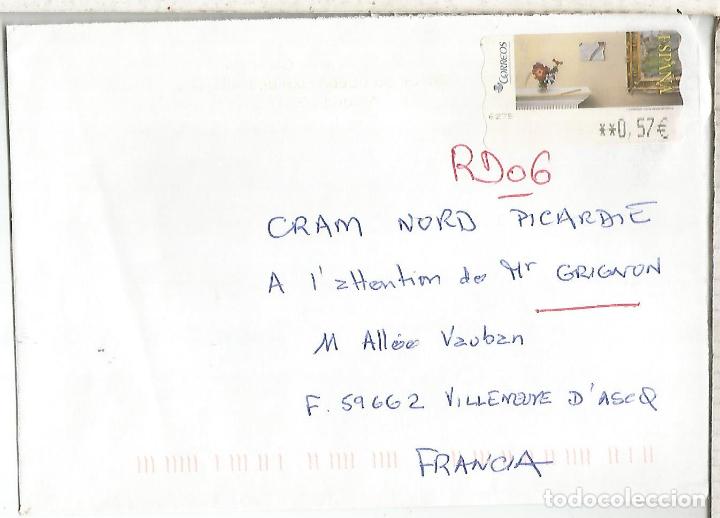 CORREOS
ESPAÑA
6275
**0,57€
RD06
CRAM NORD PICARDIE
A l'attention de Mr GRIGNON
11 Allée Vauban
F. 59662 VILLENEUVE D'ASCQ
FRANCIA
todocoleccion.net